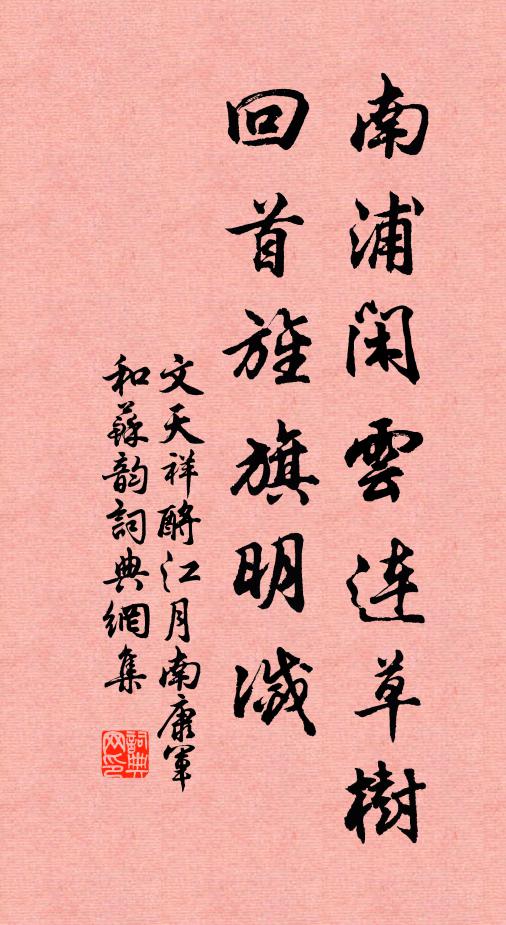 南浦闲雲连草樹
回首旌旗明滅
文天祥酹江月南康军
和蘇韵詞典網集
詞典网印